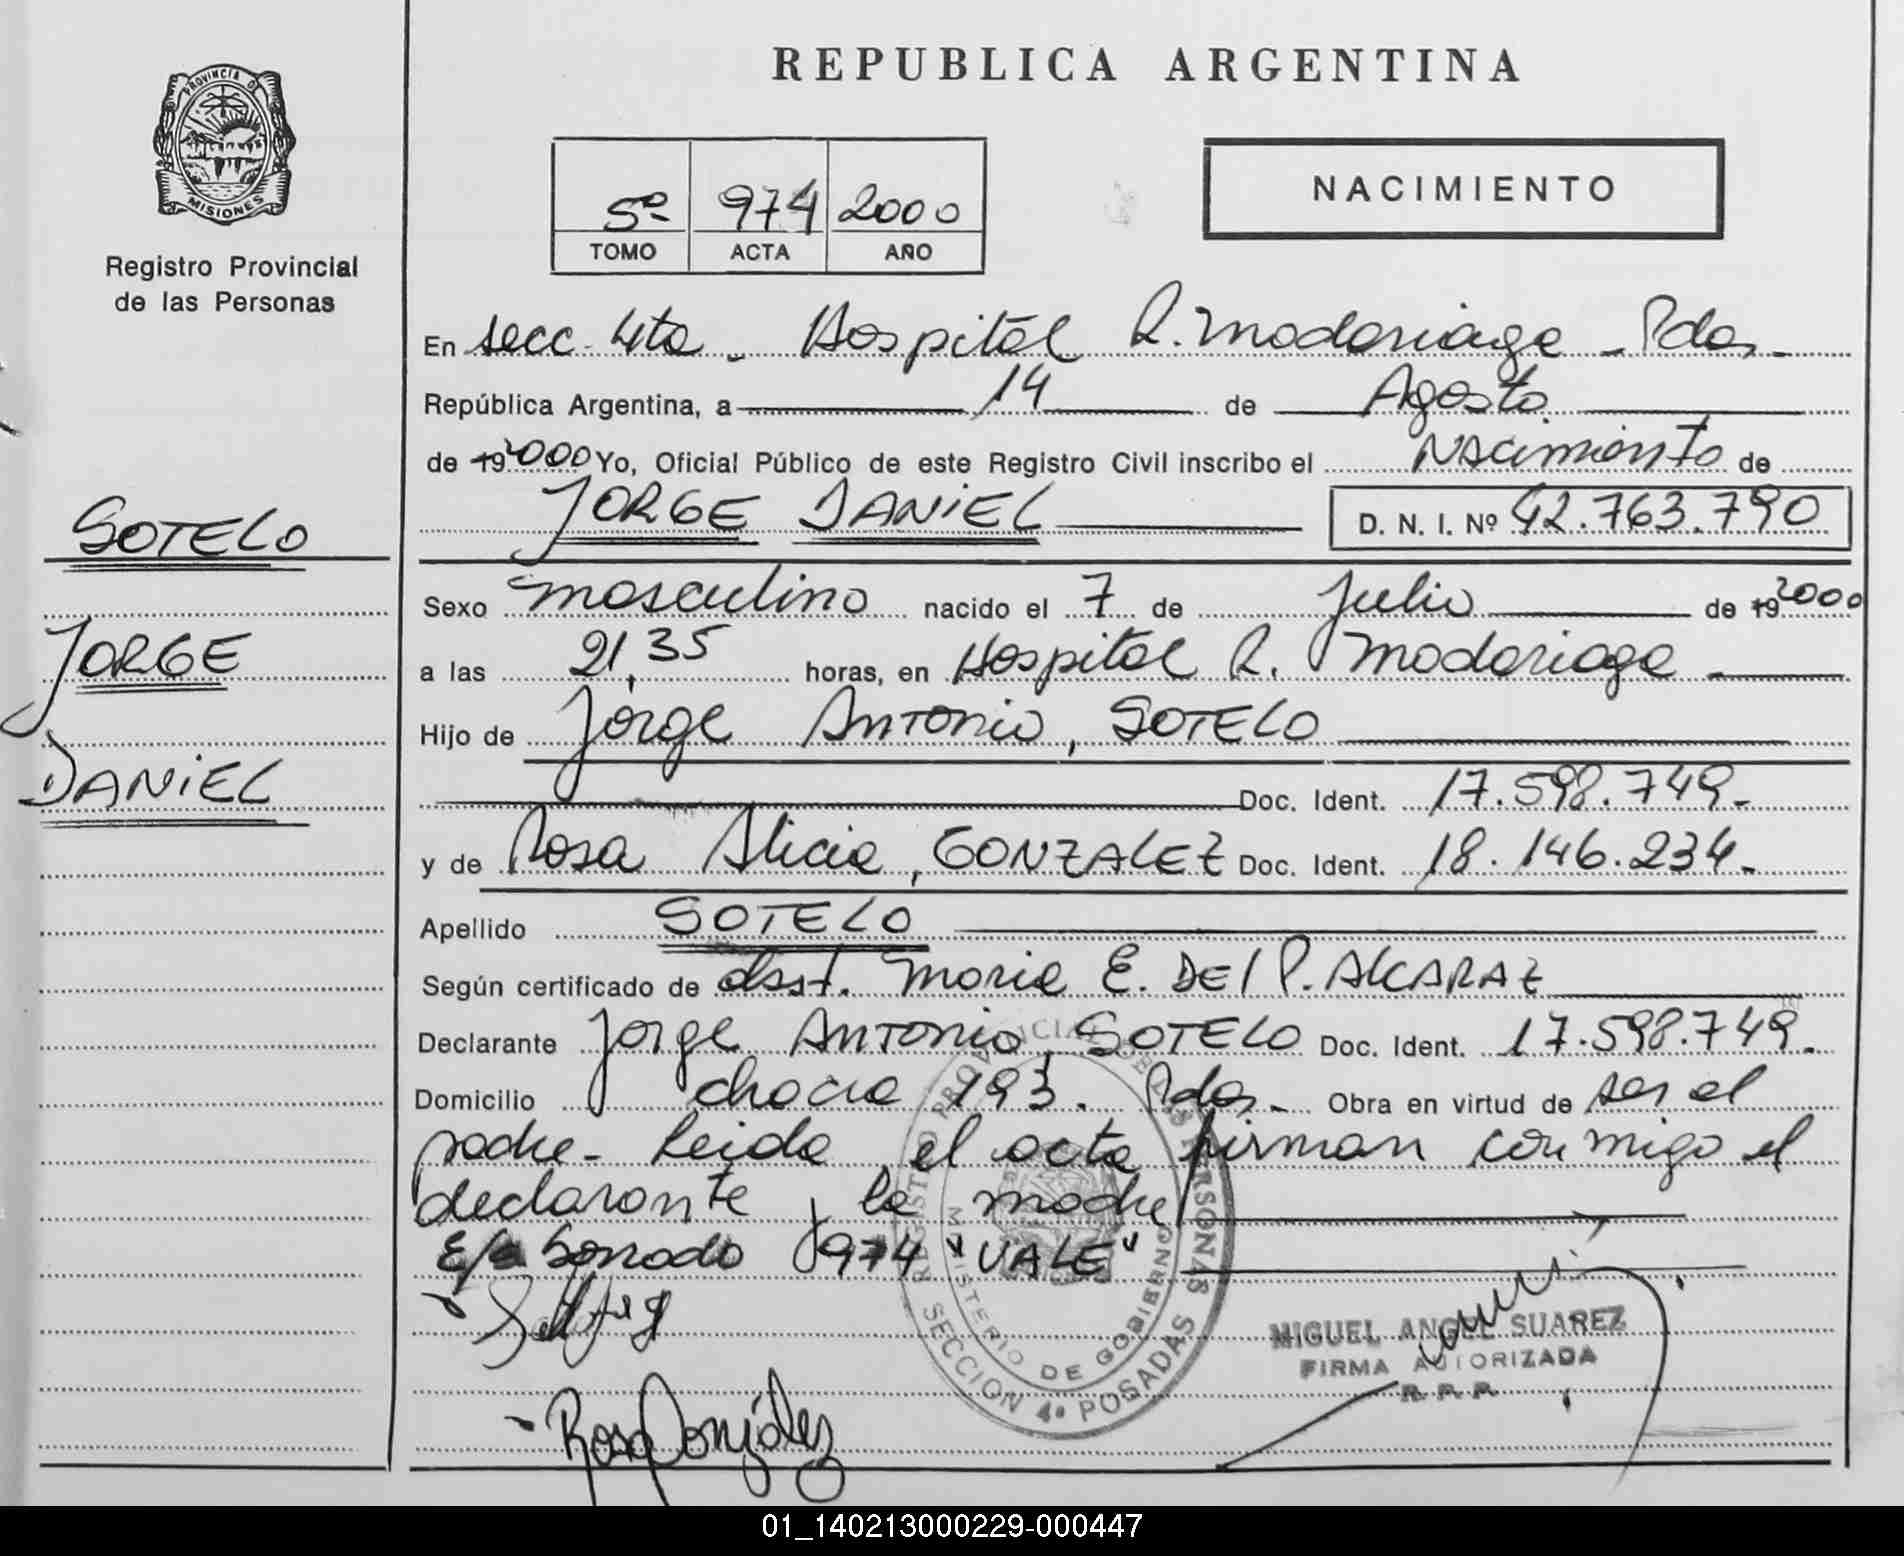 PROVINCIA DE
MISIONES
Registro Provincial
de las Personas
SOTELO
JORGE
DANIEL
REPUBLICA ARGENTINA
5º 974 2000
TOMO ACTA AÑO
NACIMIENTO
En secc. 4ta. Hospital R. Madariaga - Pdas.
República Argentina, a 14 de Agosto
de 19 2000 Yo, Oficial Público de este Registro Civil inscribo el Nacimiento de
JORGE DANIEL D. N. I. Nº 42.763.790
Sexo masculino nacido el 7 de Julio de 19 2000
a las 21,35 horas, en Hospital R. Madariaga
Hijo de Jorge Antonio, SOTELO
Doc. Ident. 17.598.749.
y de Rosa Alicia, GONZALEZ Doc. Ident. 18.146.234.
Apellido SOTELO
Según certificado de obst. Maria E. DEL P. ALCARAZ
Declarante Jorge Antonio, SOTELO Doc. Ident. 17.598.749.
Domicilio chacra 193. Pdas. Obra en virtud de ser el
padre - Leida el acta firman conmigo el
declarante y la madre
E/ Borrado 974 "VALE"
Rosa González
REGISTRO PROVINCIAL DE LAS PERSONAS
MINISTERIO DE GOBIERNO
SECCION 4ª POSADAS
MIGUEL ANGEL SUAREZ
FIRMA AUTORIZADA
R.P.P.
01_140213000229-000447